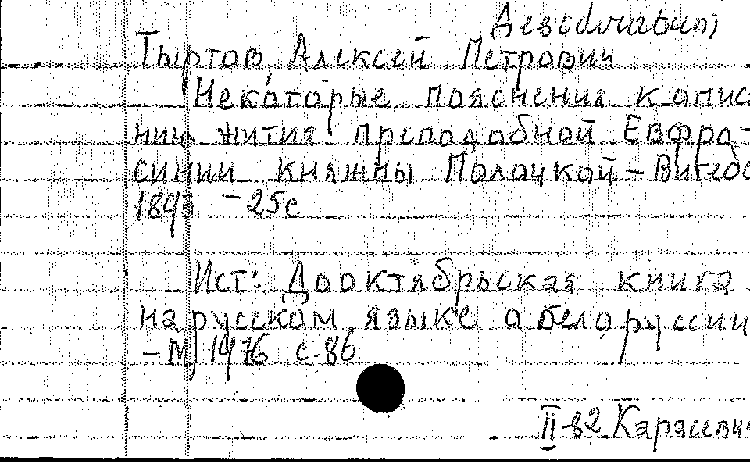 Тыртов, Алексей Петрович
Некоторые пояснения к описа
нию жития преподобной Евфро-
синии княжны Полоцкой – Витебс
1893 – 25с
Ист: Дооктябрьская книга
на русском языке о Белоруссии
– М, 1976 с. 86
II-82 Карасевич